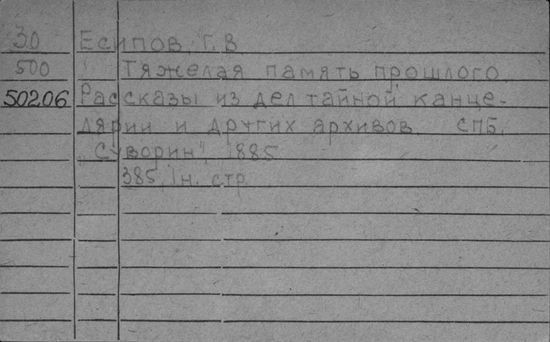 30 Есипов, Г.В.
500 Тяжелая память прошлого.
50206 Рассказы из дел тайной канце-
лярии и других архивов. СПБ,
„Суворин", 1885
385, 1н. стр